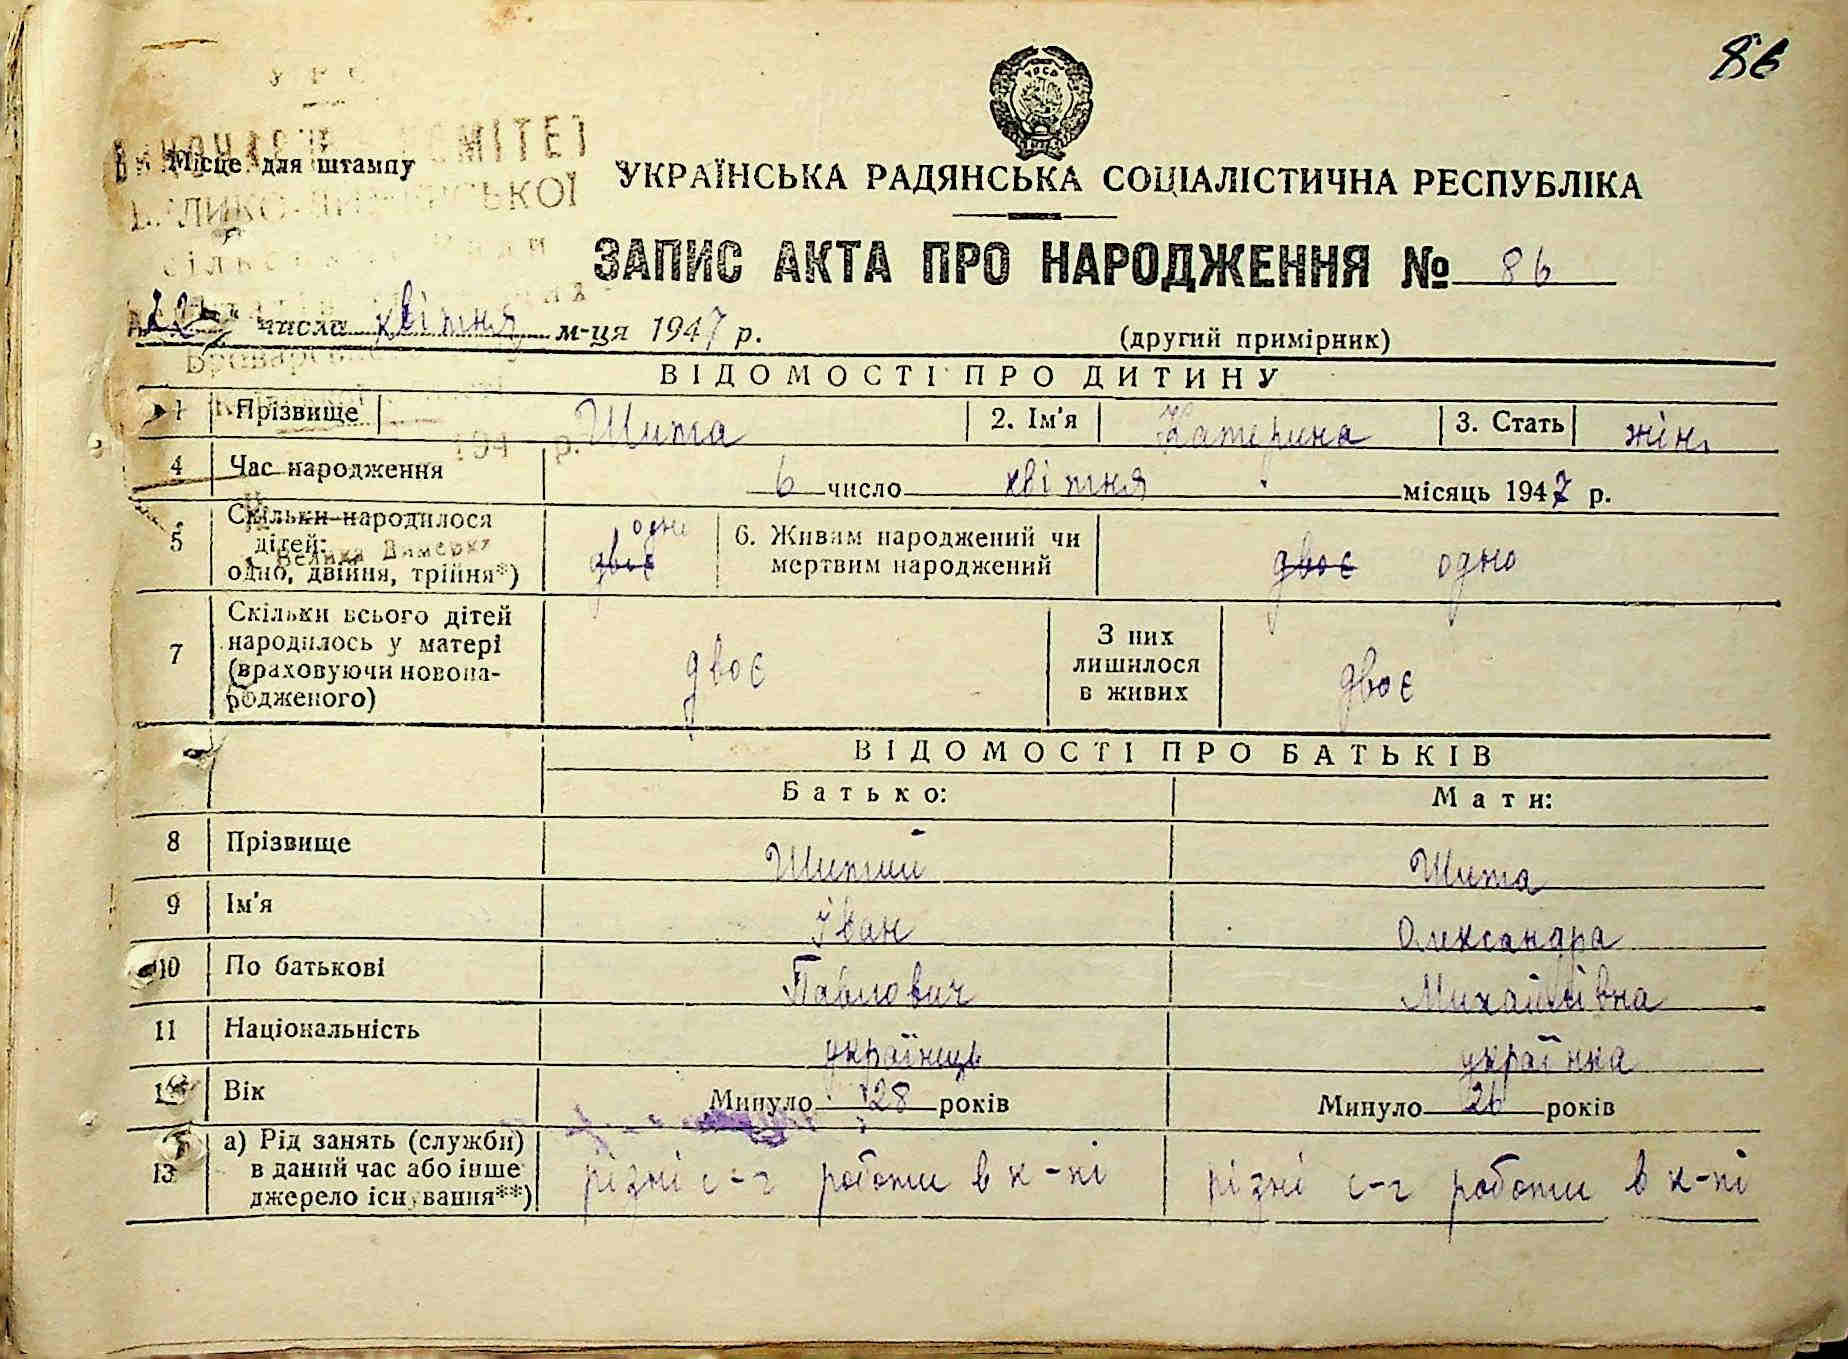 86
Місце для штампу
УКРАЇНСЬКА РАДЯНСЬКА СОЦІАЛІСТИЧНА РЕСПУБЛІКА
ЗАПИС АКТА ПРО НАРОДЖЕННЯ № 86
22 " числа квітня м-ця 1947 р.
(другий примірник)
ВІДОМОСТІ ПРО ДИТИНУ
1 Прізвище Шита 2. Ім'я Катерина 3. Стать жін.
4 Час народження 6 число квітня місяць 1947 р.
5 Скільки народилося дітей: одно, двійня, трійня*) двоє одно 6. Живим народжений чи мертвим народжений двоє одно
7 Скільки всього дітей народилось у матері (враховуючи новона-родженого) двоє З них лишилося в живих двоє
ВІДОМОСТІ ПРО БАТЬКІВ
Батько: Мати:
8 Прізвище Шитий Шита
9 Ім'я Іван Олександра
10 По батькові Павлович Михайлівна
11 Національність українець українка
12 Вік Минуло 28 років Минуло 26 років
13 а) Рід занять (служби) в даний час або інше джерело існування**) різні с-г роботи в к-пі різні с-г роботи в к-пі